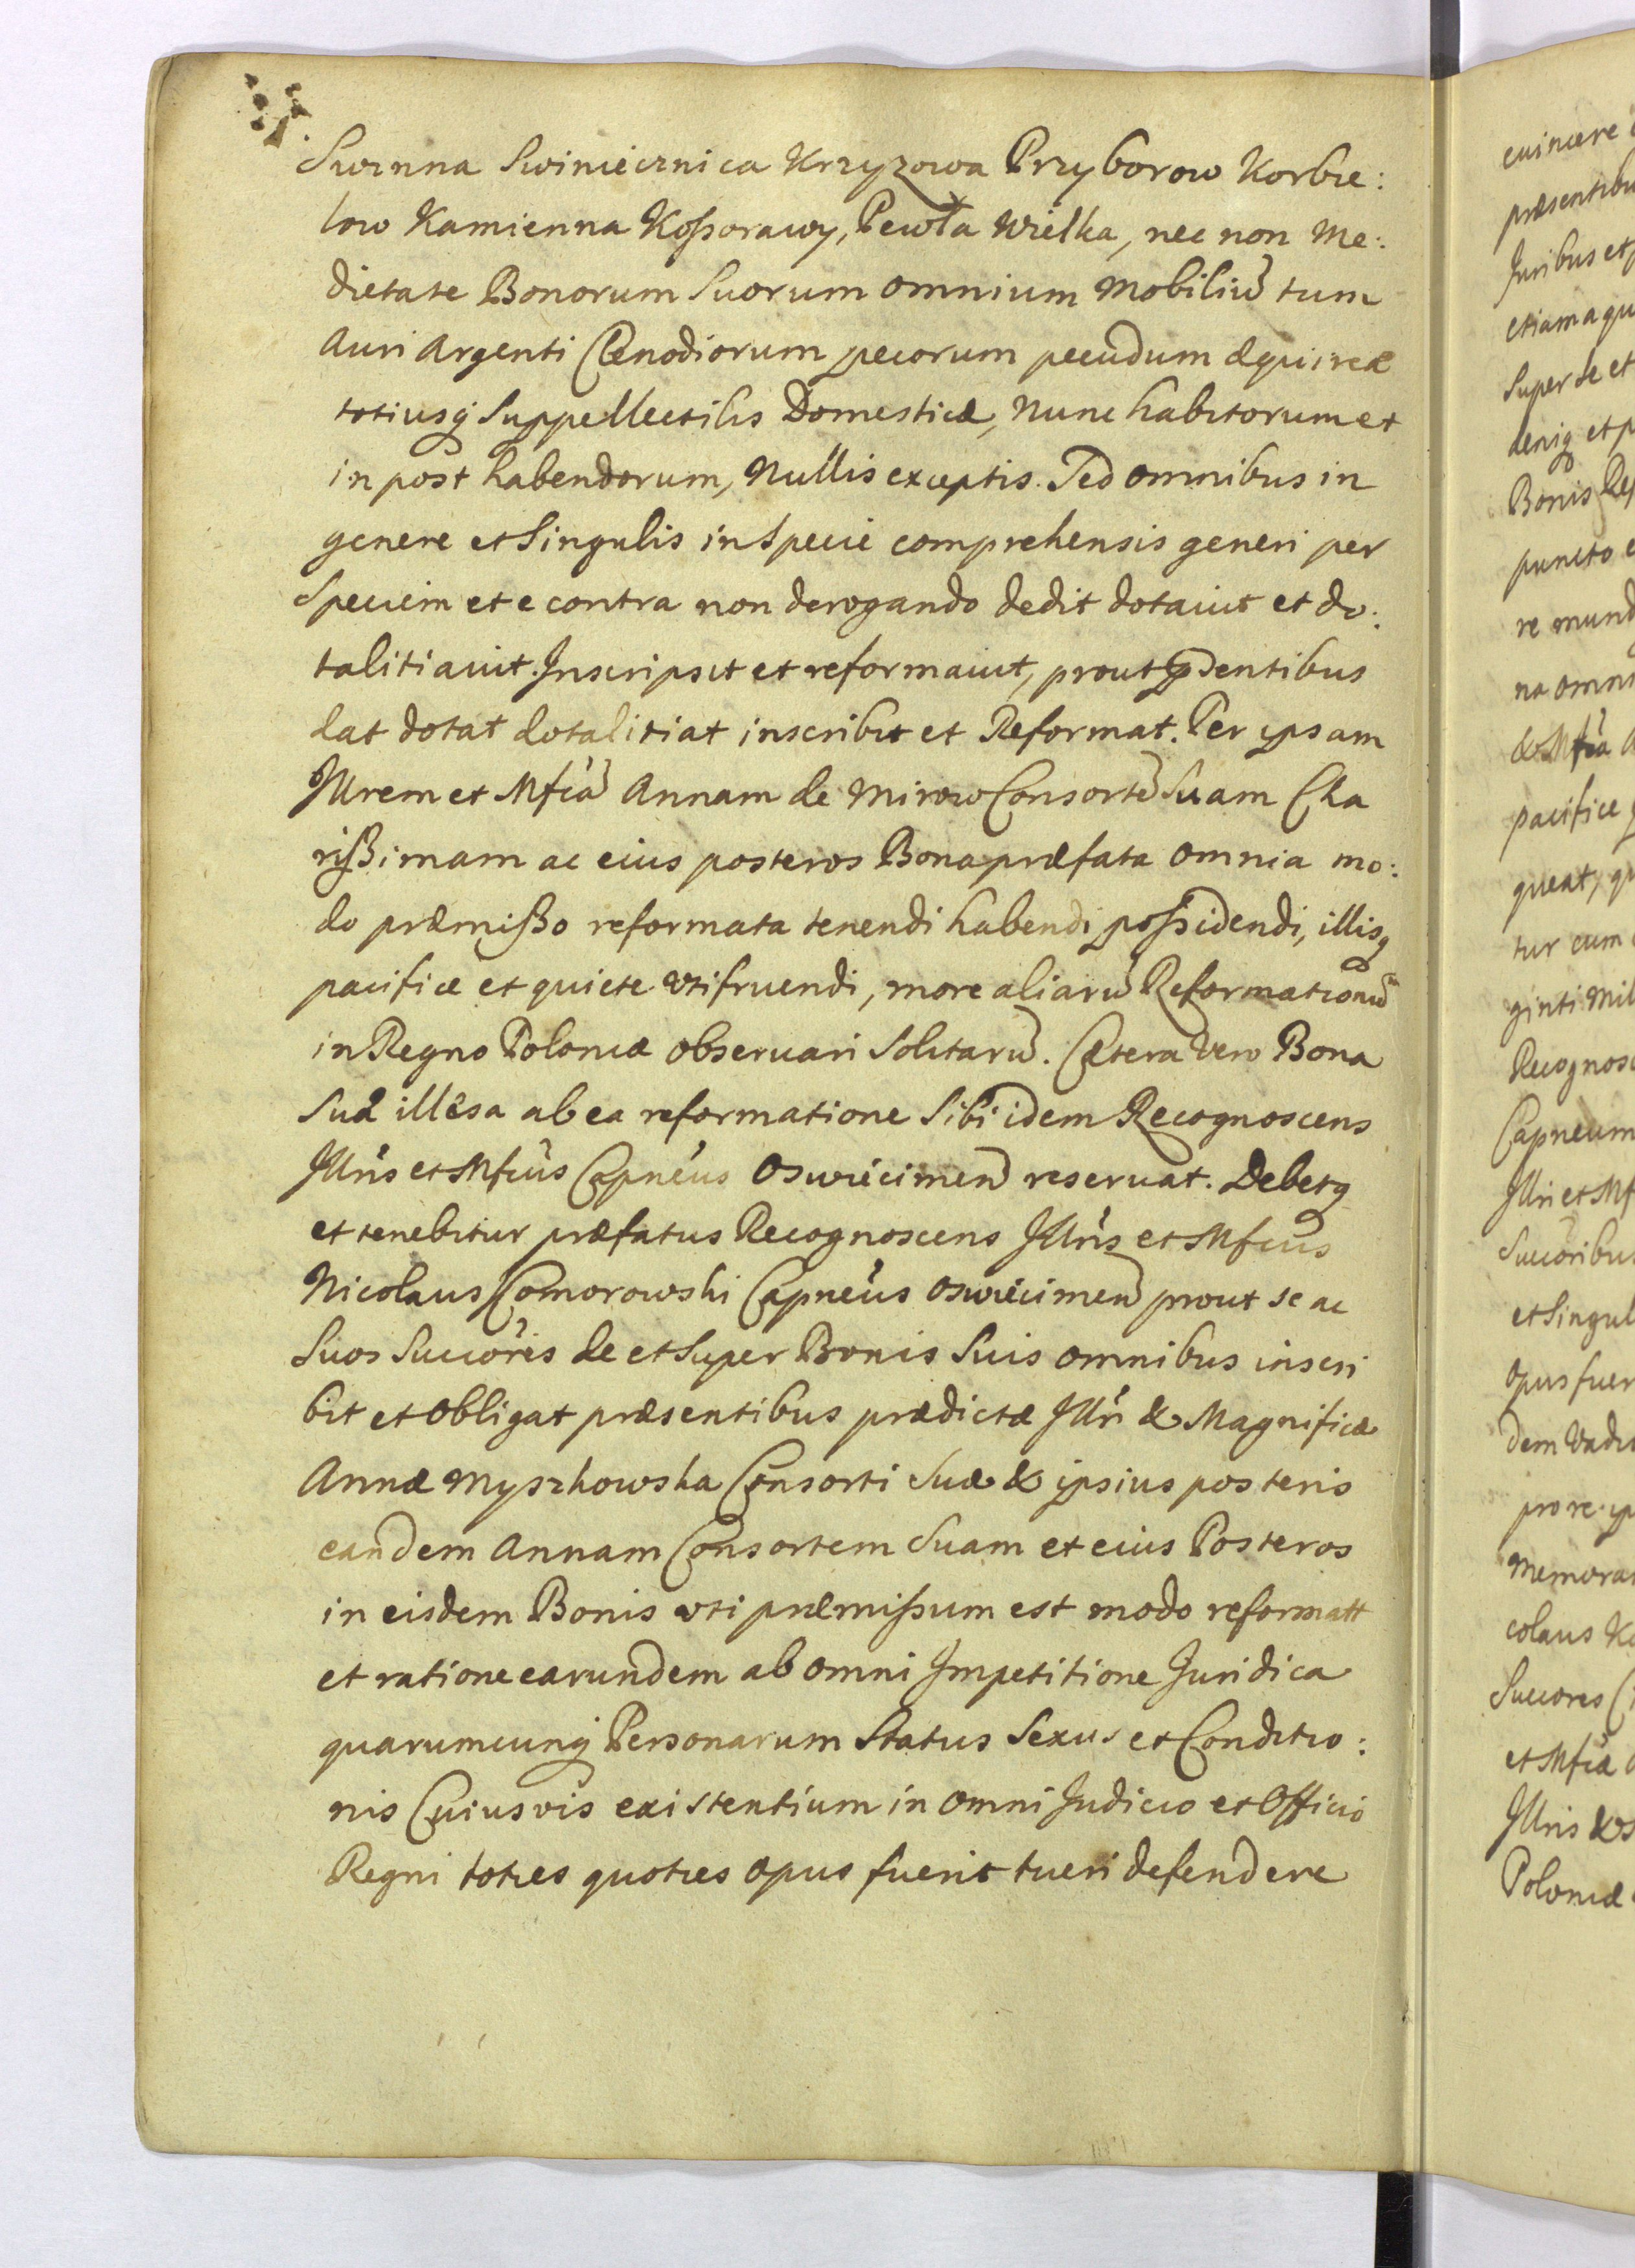 Swinna Swiniecznica Krzyzowa Przyborow Korbie:
low Kamienna Koßorawy, Pewła Wielka, nec non Me:
dietate Bonorum Suorum omnium Mobiliũ tum
Auri Argenti Clenodiorum pecorum pecudum æquireæ
totiusq́ Suppellectilis Domesticæ, Nunc habitorum et
in post habendorum, Nullis exceptis. Sed omnibus in
genere et Singulis in Specie comprehensis generi per
Speciem et e contra non derogando dedit dotauit et do:
talitiauit. Inscripsit et reformauit, prout pñsentibus
dat dotat dotalitiat inscribit et Reformat. Per ipsam
Illrem et Mfcã Annam de Mirow Consortẽ Suam Cha
rißimam ac eius posteros Bona præfata omnia mo:
do præmißo reformata tenendi habendi poßidendi, illisq
pacifice et quiete vtifruendi, more aliarũ Reformationũ
in Regno Poloniæ obseruari Solitarũ. Cætera Vero Bona
Sua illęsa ab ea reformatione Sibi idem Recognoscens
Illris et Mfcus Capneus Oswiecimeñ reseruat. Debetq
et tenebitur præfatus Recognoscens Illris et Mfcus
Nicolaus Comorowski Capneus Oswiecimeñ prout se ac
Suos Succores de et Super Bonis Suis omnibus inscri
bit et obligat præsentibus prædictæ Illri & Magnificæ
Annæ Myszkowska Consorti Suæ & ipsius posteris
eandem Annam Consortem Suam et eius Posteros
in eisdem Bonis vti præmißum est modo reformatt
et ratione earundem ab omni Impetitione Juridica
quarumcunq́ Personarum Status Sexus et Conditio:
nis Cuiusvis existentium in omni Judicio et Officio
Regni toties quoties opus fuerit tueri defendere
euincere
præsentibu
Juribus et
etiam a qu
Super se et
deniq et p
Bonis Re
puncto e
re mund
na omni
& Mfca A
pacifice
queat, qu
tur cum
ginti Mil
Recognosc
Capneum
Illri et Mf
Succoribus
et Singul
opus fuer
dem Vadio
pro re ip
Memorat
colaus Ko
Succores
et Mfcæ
Illris &
Poloniæ